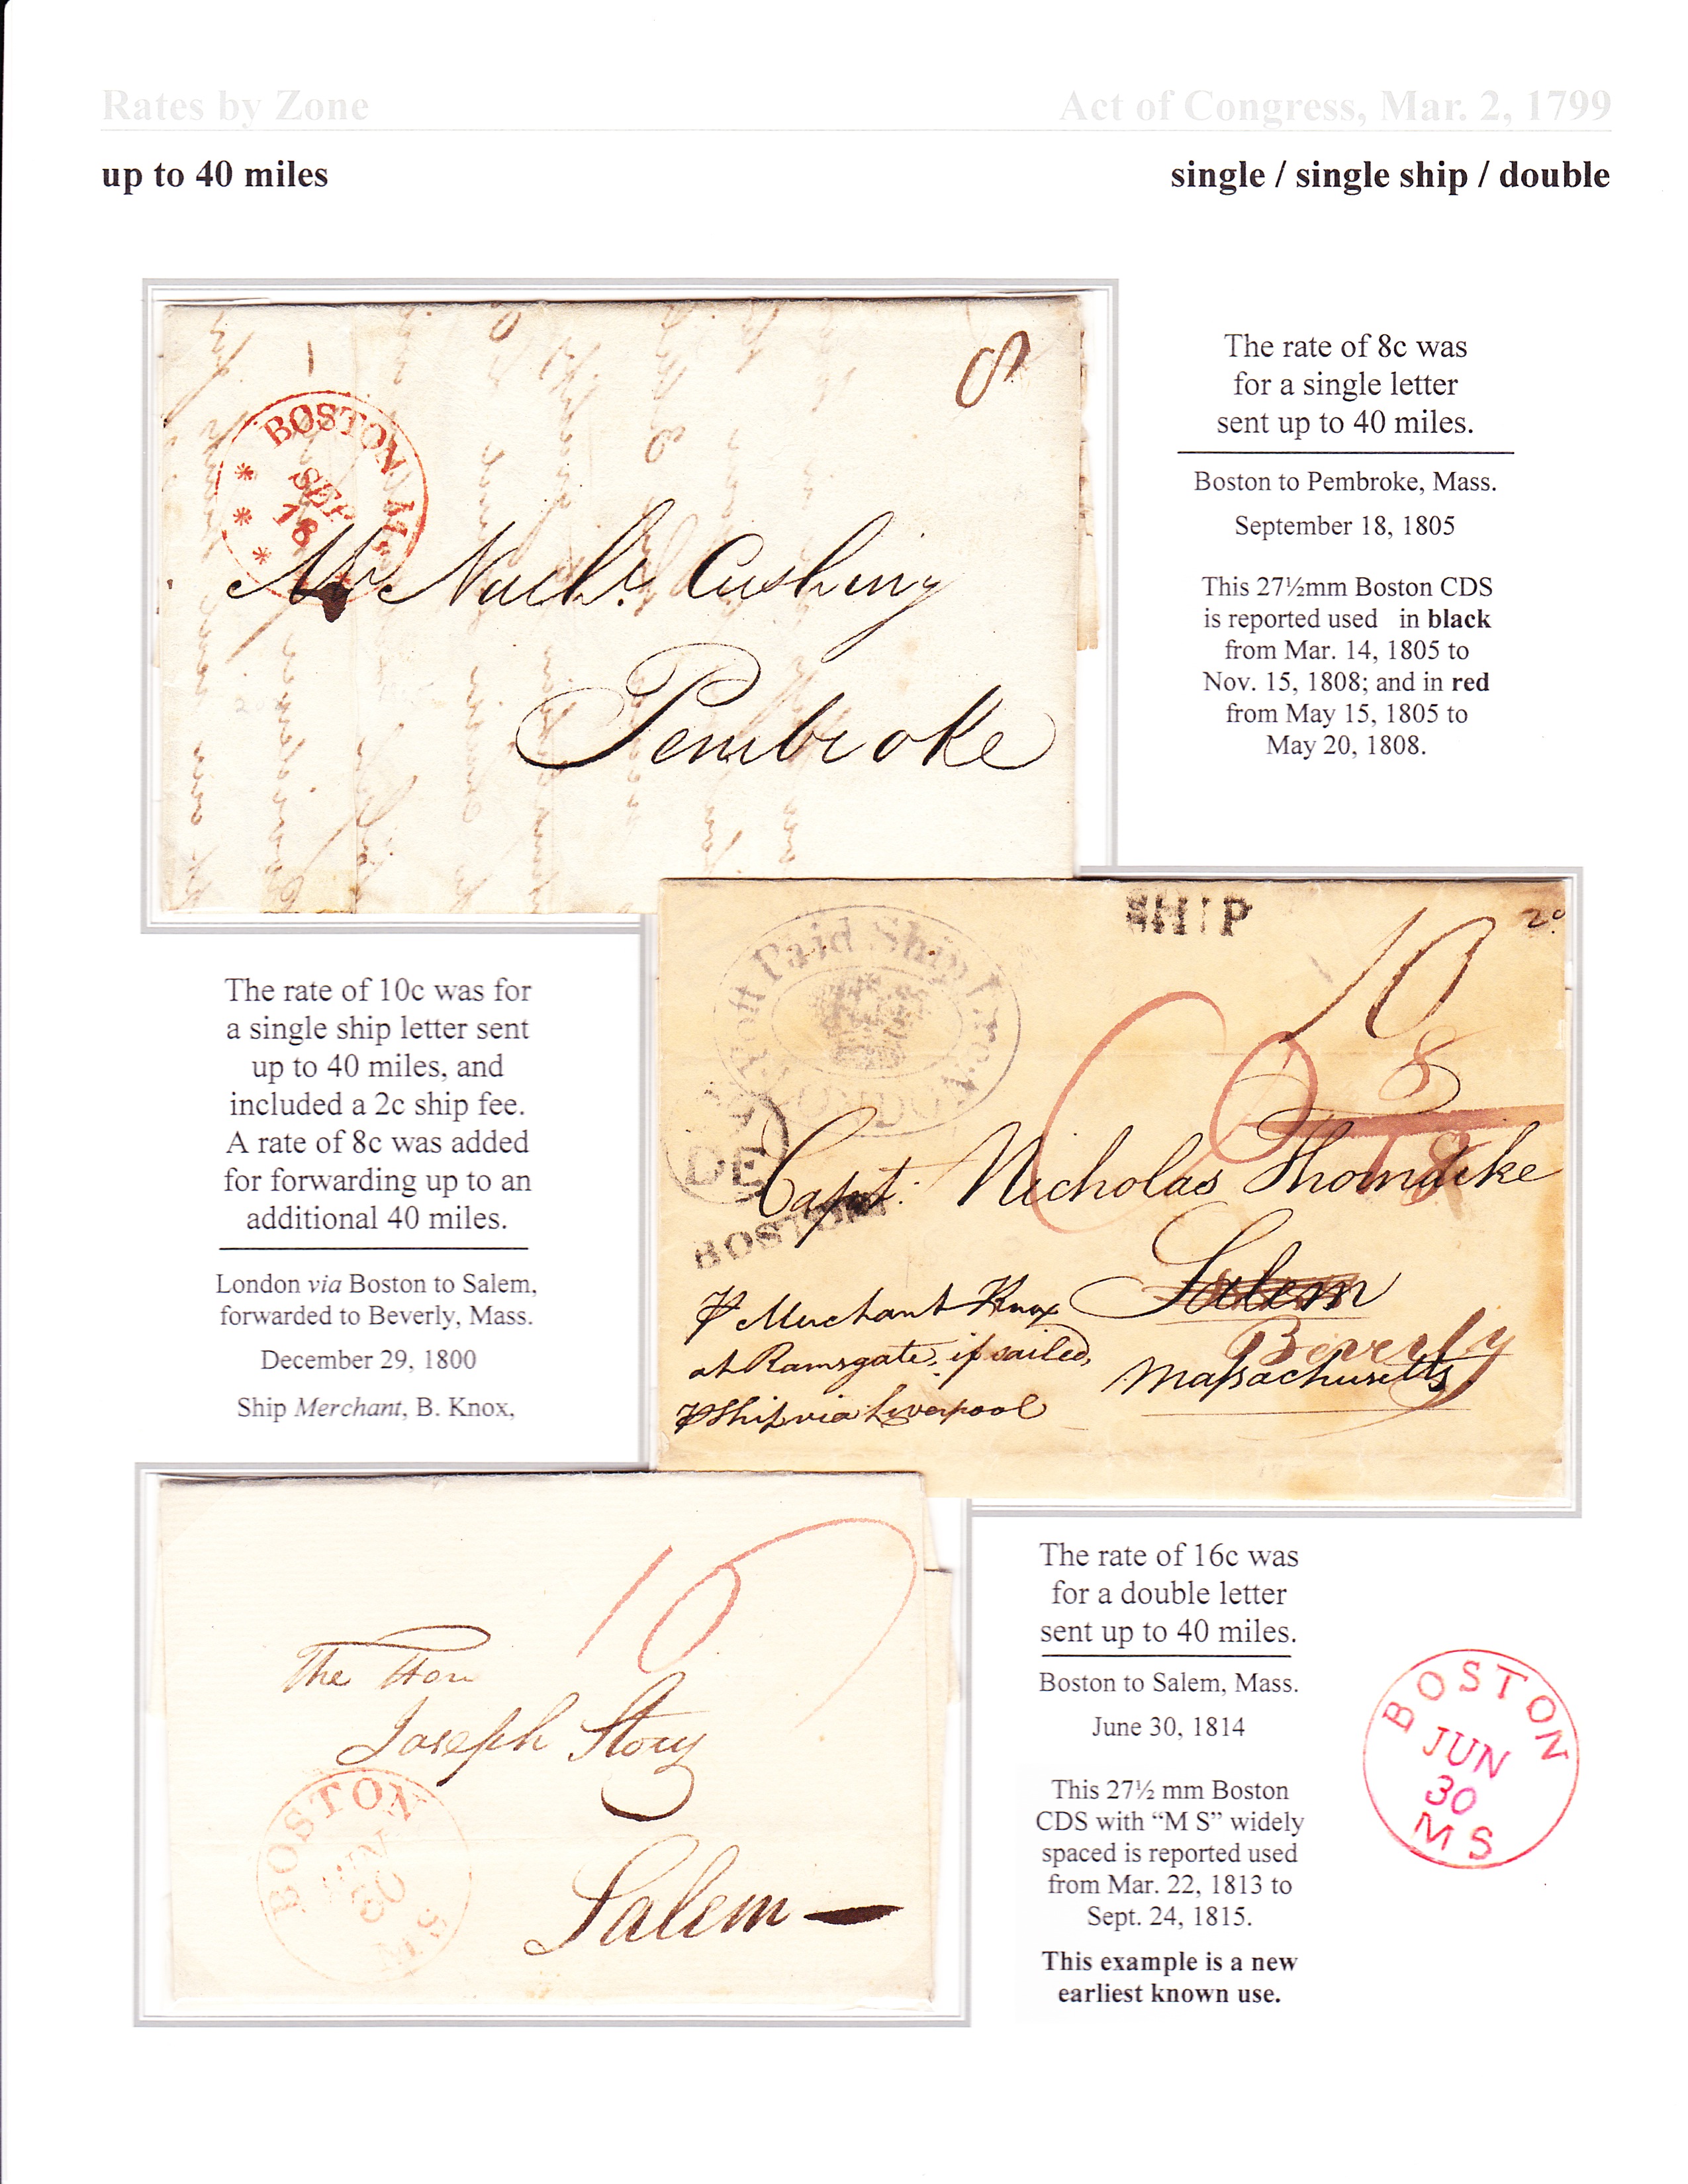 Rates by Zone
Act of Congress, Mar. 2, 1799
up to 40 miles
single / single ship / double
8
BOSTON
SEP
18
Mr Nathl. Cushing
Pembroke
The rate of 8c was
for a single letter
sent up to 40 miles.
Boston to Pembroke, Mass.
September 18, 1805
This 27½mm Boston CDS
is reported used in black
from Mar. 14, 1805 to
Nov. 15, 1808; and in red
from May 15, 1805 to
May 20, 1808.
The rate of 10c was for
a single ship letter sent
up to 40 miles, and
included a 2c ship fee.
A rate of 8c was added
for forwarding up to an
additional 40 miles.
London via Boston to Salem,
forwarded to Beverly, Mass.
December 29, 1800
Ship Merchant, B. Knox,
SHIP
10
8
18
Post Paid Ship Letter
LONDON
DE
BOSTON
Capt. Nicholas Thorndike
Salem
Beverly
Massachusetts
⅌ Merchant Knox
at Ramsgate, if sailed,
⅌ Ship via Liverpool
16
The Hon
Joseph Story
Salem
BOSTON
JUN
30
MS
The rate of 16c was
for a double letter
sent up to 40 miles.
Boston to Salem, Mass.
June 30, 1814
This 27½ mm Boston
CDS with “M S” widely
spaced is reported used
from Mar. 22, 1813 to
Sept. 24, 1815.
This example is a new
earliest known use.
BOSTON
JUN
30
M S